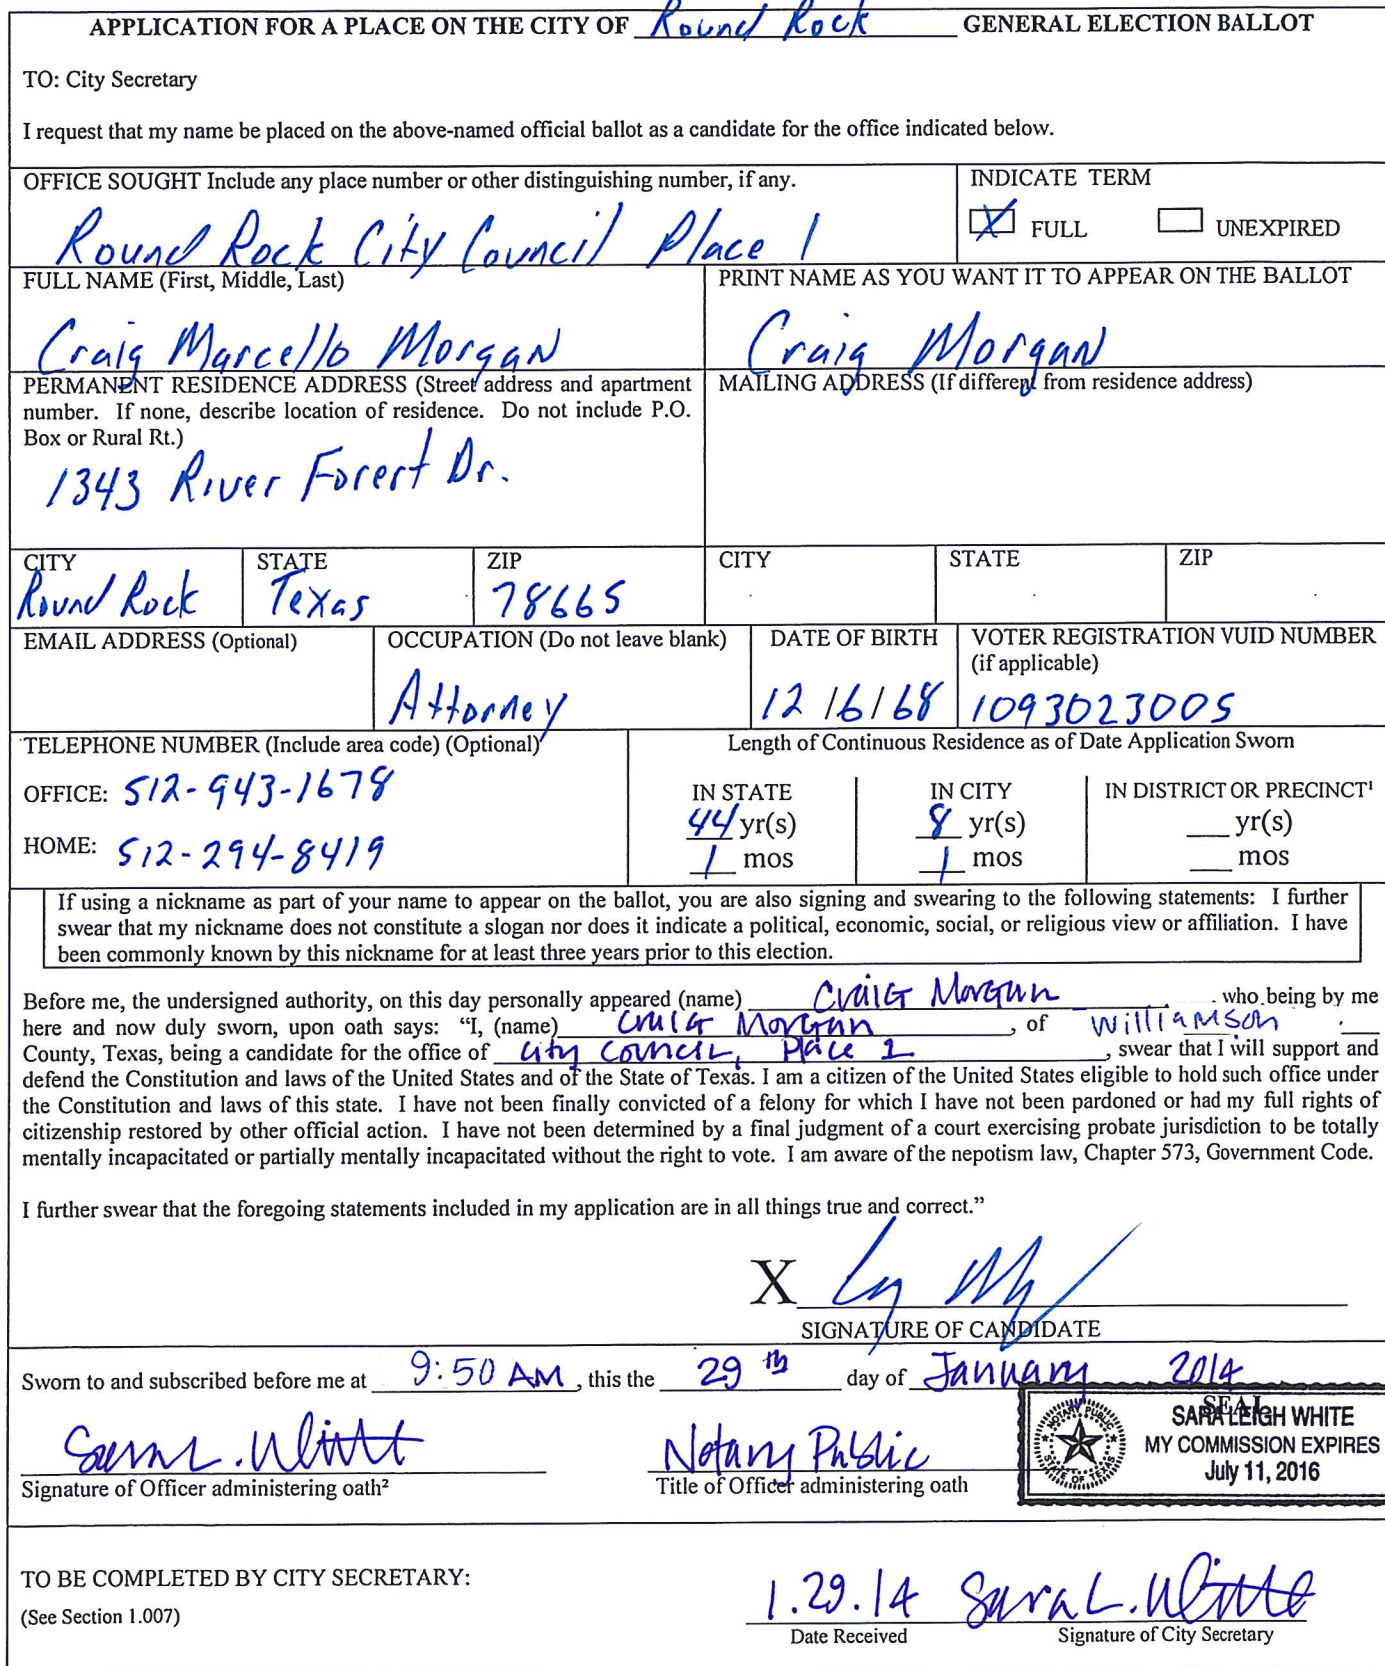 APPLICATION FOR A PLACE ON THE CITY OF Round Rock GENERAL ELECTION BALLOT
TO: City Secretary
I request that my name be placed on the above-named official ballot as a candidate for the office indicated below.
OFFICE SOUGHT Include any place number or other distinguishing number, if any.
Round Rock City Council Place 1
INDICATE TERM
X FULL UNEXPIRED
FULL NAME (First, Middle, Last)
Craig Marcello Morgan
PRINT NAME AS YOU WANT IT TO APPEAR ON THE BALLOT
Craig Morgan
PERMANENT RESIDENCE ADDRESS (Street address and apartment
number. If none, describe location of residence. Do not include P.O.
Box or Rural Rt.)
1343 River Forest Dr.
MAILING ADDRESS (If different from residence address)
CITY
Round Rock
STATE
Texas
ZIP
78665
CITY
STATE
ZIP
EMAIL ADDRESS (Optional)
OCCUPATION (Do not leave blank)
Attorney
DATE OF BIRTH
12/6/68
VOTER REGISTRATION VUID NUMBER
(if applicable)
1093023005
TELEPHONE NUMBER (Include area code) (Optional)
OFFICE: 512-943-1678
HOME: 512-294-8419
Length of Continuous Residence as of Date Application Sworn
IN STATE
44 yr(s)
1 mos
IN CITY
8 yr(s)
1 mos
IN DISTRICT OR PRECINCT¹
yr(s)
mos
If using a nickname as part of your name to appear on the ballot, you are also signing and swearing to the following statements: I further
swear that my nickname does not constitute a slogan nor does it indicate a political, economic, social, or religious view or affiliation. I have
been commonly known by this nickname for at least three years prior to this election.
Before me, the undersigned authority, on this day personally appeared (name) Craig Morgan who being by me
here and now duly sworn, upon oath says: “I, (name) Craig Morgan, of Williamson
County, Texas, being a candidate for the office of City Council, Place 1, swear that I will support and
defend the Constitution and laws of the United States and of the State of Texas. I am a citizen of the United States eligible to hold such office under
the Constitution and laws of this state. I have not been finally convicted of a felony for which I have not been pardoned or had my full rights of
citizenship restored by other official action. I have not been determined by a final judgment of a court exercising probate jurisdiction to be totally
mentally incapacitated or partially mentally incapacitated without the right to vote. I am aware of the nepotism law, Chapter 573, Government Code.
I further swear that the foregoing statements included in my application are in all things true and correct.”
X
SIGNATURE OF CANDIDATE
Sworn to and subscribed before me at 9:50 AM, this the 29th day of January 2014
SEAL
NOTARY PUBLIC
STATE OF TEXAS
SARA LEIGH WHITE
MY COMMISSION EXPIRES
July 11, 2016
Sara L. White
Signature of Officer administering oath²
Notary Public
Title of Officer administering oath
TO BE COMPLETED BY CITY SECRETARY:
(See Section 1.007)
1.29.14
Date Received
Sara L. White
Signature of City Secretary